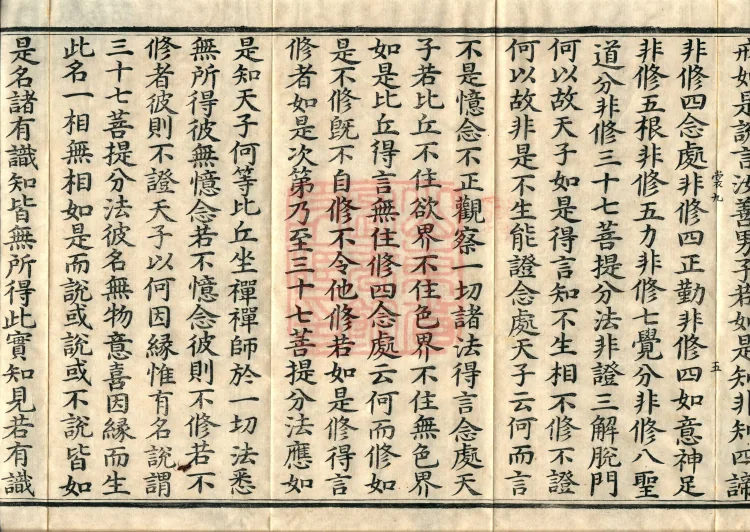 戒如是說言汝善男子若如是知非知四諦
非修四念處非修四正勤非修四如意神足
非修五根非修五力非修七覺分非修八聖
道分非修三十七菩提分法非證三解脫門
何以故天子如是得言知不生相不修不證
何以故非是不生能證念處天子云何而言
不是憶念不正觀察一切諸法得言念處天
子若比丘不住欲界不住色界不住無色界
如是比丘得言無住修四念處云何而修如
是不修既不自修不令他修若如是修得言
修者如是次第乃至三十七菩提分法應如
是知天子何等比丘坐禪禪師於一切法悉
無所得彼無憶念若不憶念彼則不修若不
修者彼則不證天子以何因緣惟有名說謂
三十七菩提分法彼名無物意喜因緣而生
此名一相無相如是而說或說或不說皆如
是名諸有識知皆無所得此實知見若有識
裳九
五